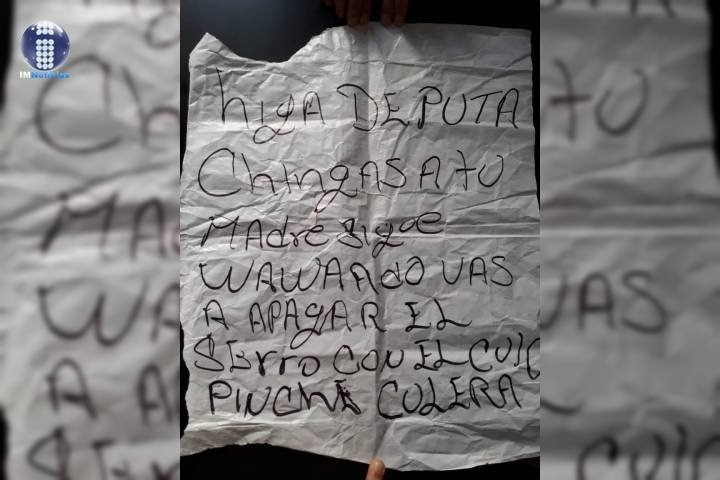 IMNoticias
higA DE PUTA
ChingAS A tU
MAdre sigue
WAWAndo VAS
A APAgAR EL
SIErro CON EL CULO
PINCHE CULERA